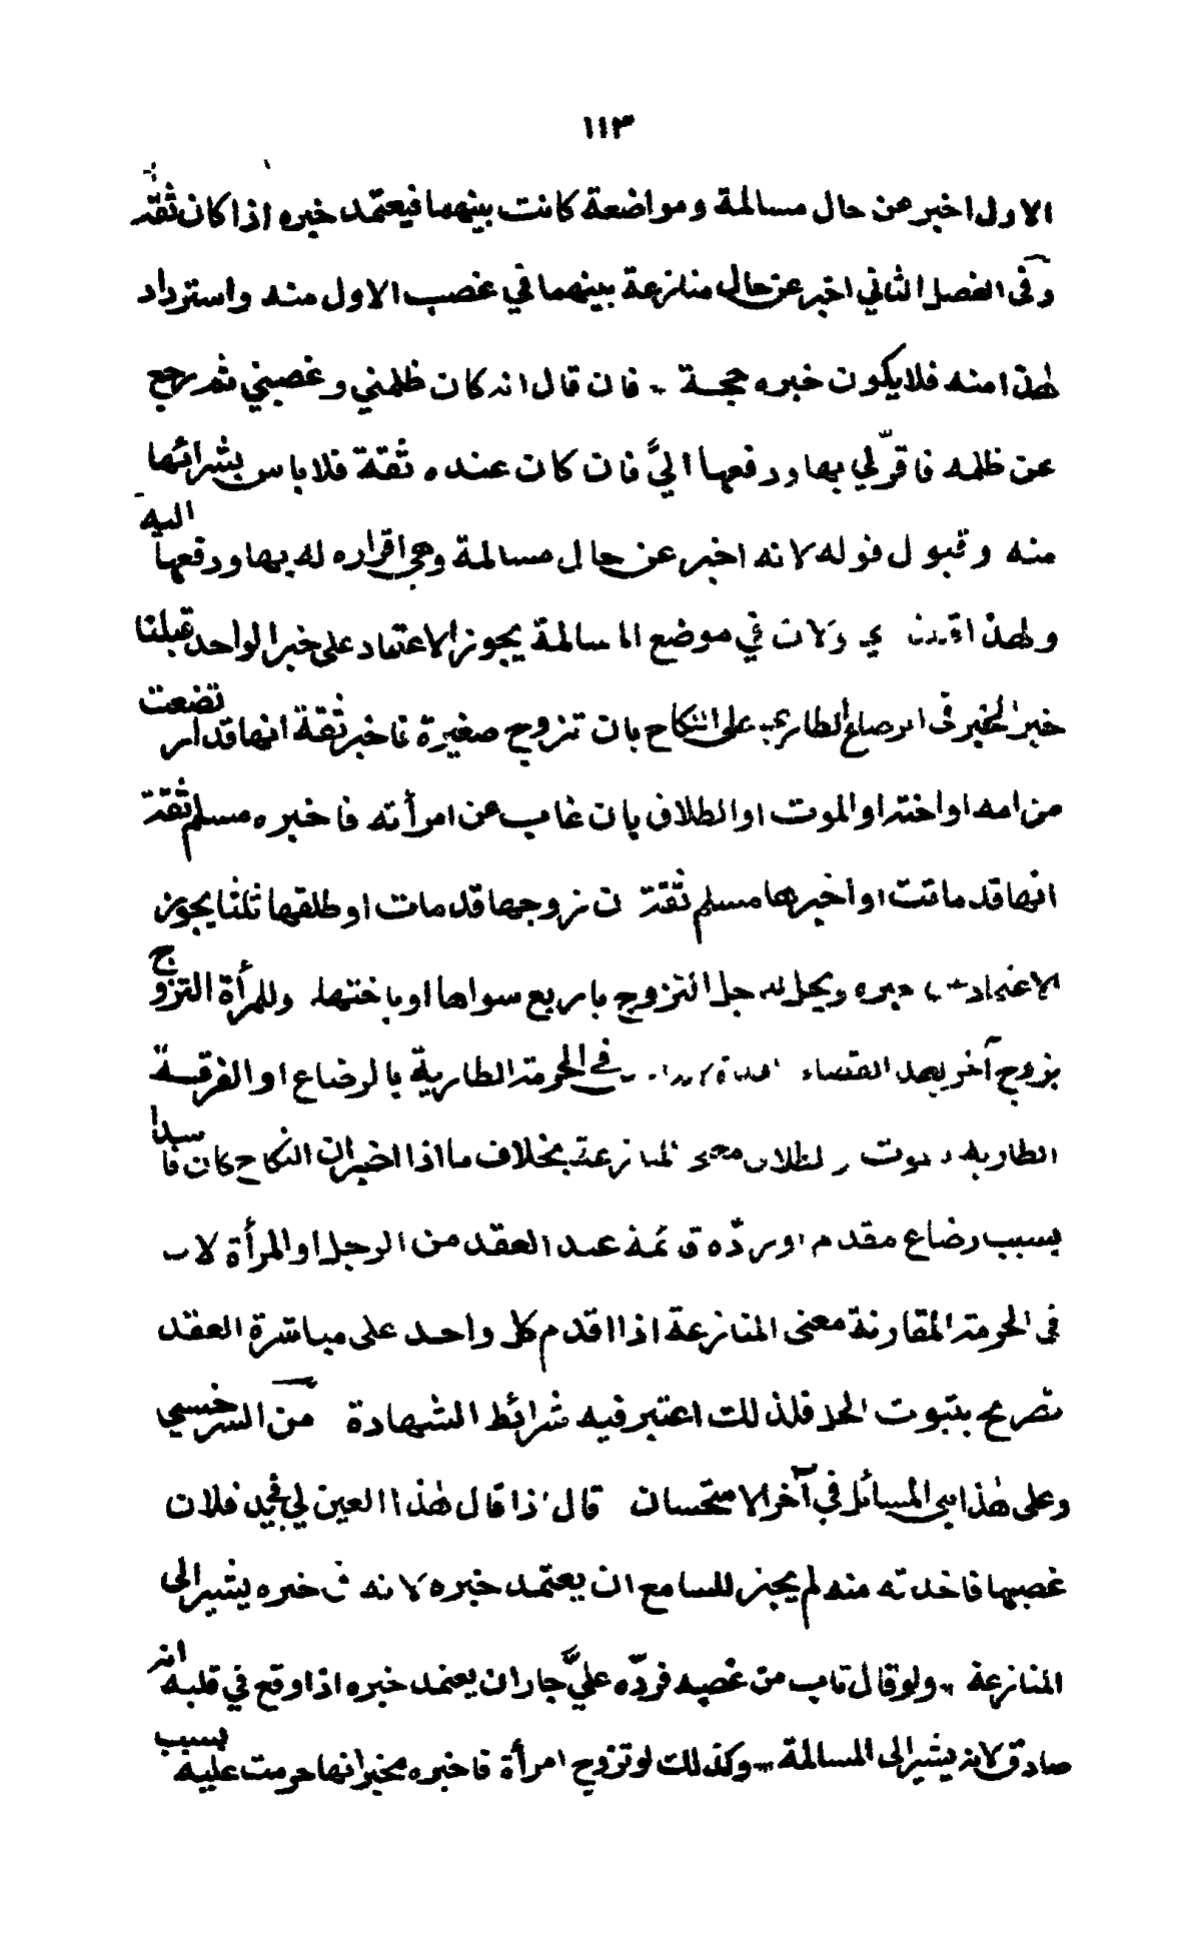 ١١٣
الاول اخبر عن حال مسالمة ومواضعة كانت بينهما فيعتمد خبره اذا كان ثقة
وفى الفصل الثاني اخبر عن حال منازعة بينهما في غصب الاول منه واسترداد
هذا منه فلا يكون خبره حجة ـ فان قال انه كان ظلمني وغصبني ثم رجع
عن ظلمه فاقرّ لي بها ودفعها اليَّ فان كان عنده ثقة فلا باس بشرائها
منه وقبول قوله لانه اخبر عن حال مسالمة وهى اقراره له بها ودفعها اليه
ولهذا ولان في موضع المسالمة يجوز الاعتماد على خبر الواحد قبلنا
خبر المخبر فى الرضاع الطاري على النكاح بان تزوج صغيرة فاخبر ثقة انها قد ارتضعت
من امه او اخته او الموت او الطلاق بان غاب عن امرأته فاخبره مسلم ثقة
انها قد ماتت او اخبرها مسلم ثقة ن زوجها قد مات او طلقها ثلثا يجوز
الاعتماد خبره ويحل له جل التزوج باربع سواها او باختها وللمرأة التزوج
بزوج آخر بعد انقضاء العدة في الحرمة الطارية بالرضاع او الفرقة
الطاريه موت الطلاق معنى المنازعة بخلاف ما اذا اخبر ان النكاح كان فاسدا
بسبب رضاع مقدم او ردّه ق ئمة عند العقد من الرجل او المرأة لان
فى الحرمة المقارنة معنى المنازعة اذا اقدم كل واحد على مباشرة العقد
تصريح بثبوت الحل فلذلك اعتبر فيه شرائط الشهادة من السرخسي
وعلى هذا مبى المسائل في آخر الاستحسان قال اذا قال هذا العين لي فى يد فلان
غصبها فاخذته منه لم يجز للسامع ان يعتمد خبره لانه فى خبره يشير الى
المنازعة ،، ولو قال تاب من غصبه فردّه عليَّ جاز ان يعتمد خبره اذا وقع في قلبه انه
صادق لانه يشير الى المسالمة ،، وكذلك لو تزوج امرأة فاخبره مخبر انها حرمت عليه بسبب